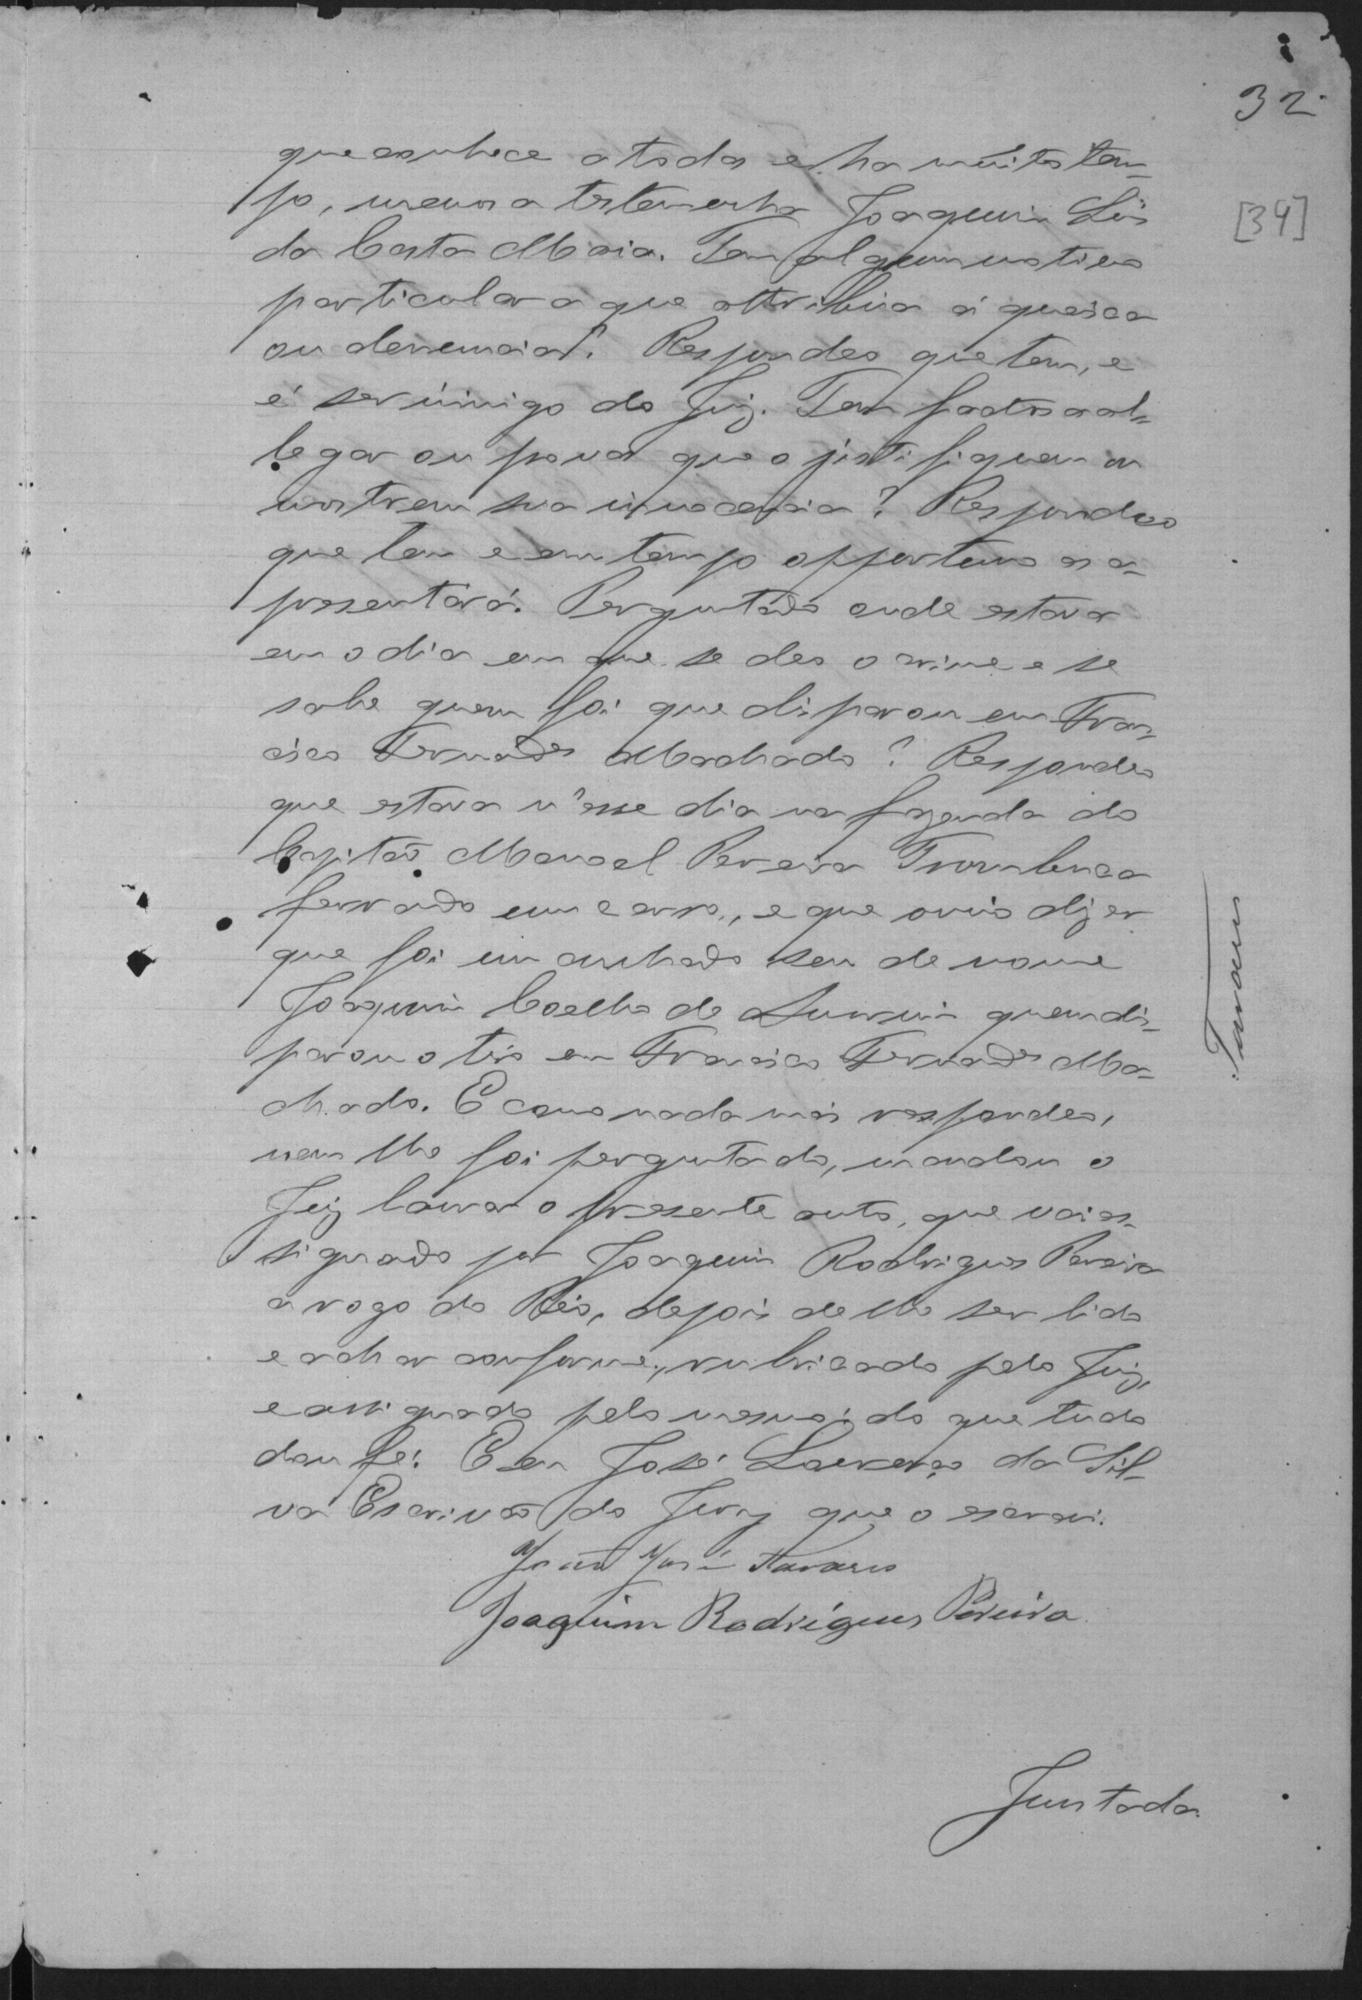 32
[34]
que conhece a todos e ha muito tem-
po, menos a testemunha Joaquim Luis
da Costa Maia. Tem algum motivo
particular a que attribua á queixa
ou denuncia? Respondeo que tem, e
é ser inimigo do Juiz. Tem factos a al-
legar ou provas que o justifiquem ou
mostrem sua innocencia? Respondeo
que tem e em tempo opportuno as a-
presentará. Perguntado onde estava
em o dia em que se deo o crime e se
sabe quem foi que disparou em Fran-
cisco Fernandes Machado? Respondeo
que estava n'esse dia na fazenda do
Capitaõ Manoel Pereira
ferrando um carro, e que ouvio dizer
que foi um cunhado seu de nome
Joaquim Coelho de quem dis-
parou o tiro em Francisco Fernandes Ma-
chado. E como nada mais respondeo,
nem lhe foi perguntado, mandou o
Juiz lavrar o presente auto, que vai as-
signado por Joaquim Rodrigues Pereira
a rogo do Réo, depois de lhe ser lido
e achar conforme, rubricado pelo Juiz,
e assignado pelo mesmo; do que tudo
dou fé. E eu José Lourenço da Sil-
va Escrivaõ do Jury que o escrevi.
João José Tavares
Joaquim Rodrigues Pereira
Tavares
Juntada